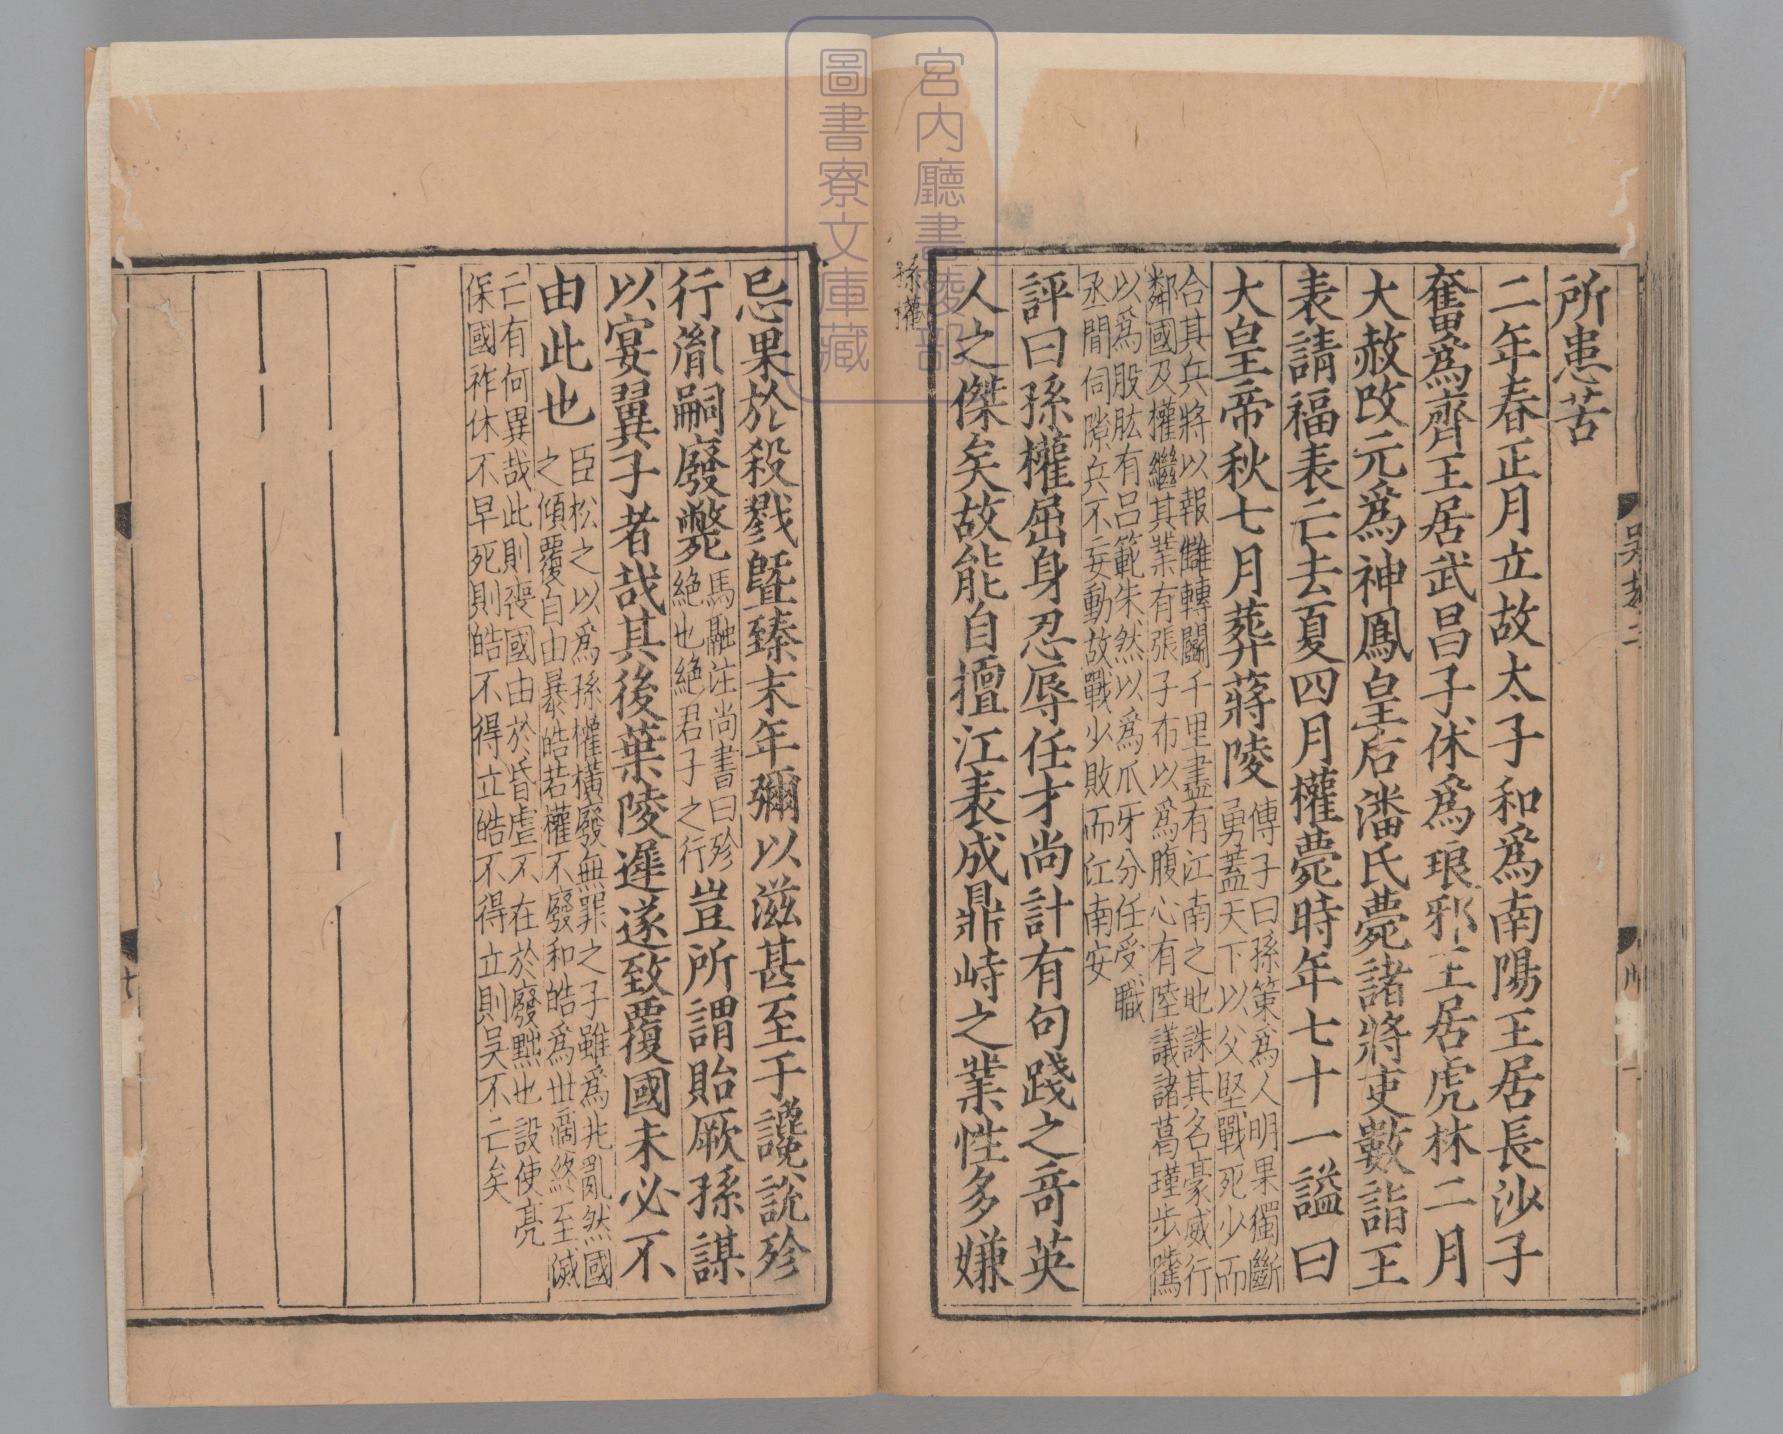 所患苦
二年春正月立故太子和爲南陽王居長沙子
奮爲齊王居武昌子休爲琅邪王居虎林二月
大赦改元爲神鳳皇后潘氏薨諸將吏數詣王
表請福表亡去夏四月權薨時年七十一謚曰
大皇帝秋七月葬蔣陵
傅子曰孫策爲人明果獨斷
勇蓋天下以父堅戰死少而
合其兵將以報讎轉鬭千里盡有江南之地誅其名豪威行
鄰國及權繼其業有張子布以爲腹心有陸議諸葛瑾步隲
以爲股肱有呂範朱然以爲爪牙分任受職
乘間伺隙兵不妄動故戰少敗而江南安
評曰孫權屈身忍辱任才尚計有句踐之奇英
人之傑矣故能自擅江表成鼎峙之業性多嫌
孫權
忌果於殺戮曁臻末年彌以滋甚至于讒說殄
行胤嗣廢斃
馬融注尚書曰殄
絕也絕君子之行
豈所謂貽厥孫謀
以宴翼子者哉其後葉陵遲遂致覆國未必不
由此也
臣松之以爲孫權橫廢無罪之子雖爲兆亂然國
之傾覆自由暴皓若權不廢和皓爲世適終至滅
亡有何異哉此則喪國由於昏虐不在於廢黜也設使亮
保國祚休不早死則皓不得立皓不得立則吳不亡矣
宮内廳書陵部
圖書寮文庫藏